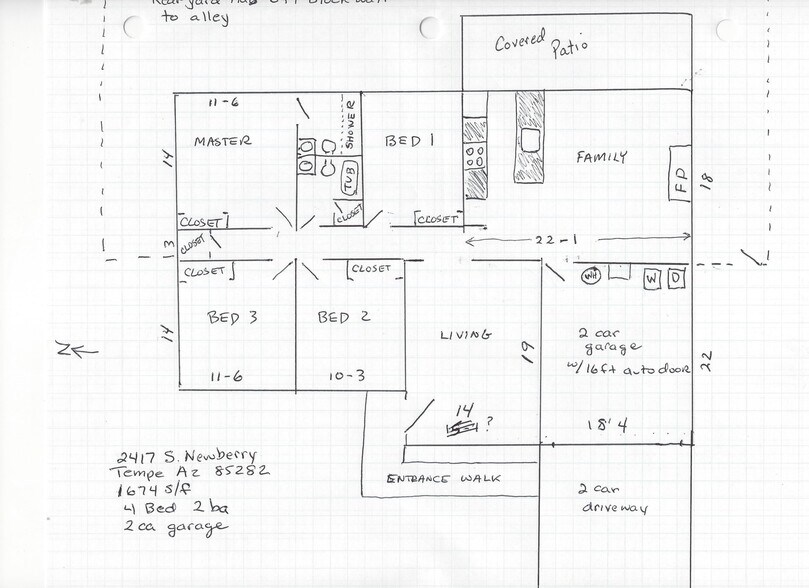 to alley
Covered Patio
11-6
SHOWER
MASTER
BED 1
FAMILY
14
TUB
FP
18
CLOSET
CLOSET
CLOSET
3
CLOSET
22-1
CLOSET
CLOSET
WH
W
D
BED 3
BED 2
LIVING
2 car
garage
w/16ft auto door
14
19
22
N
11-6
10-3
14
?
18' 4
2417 S. Newberry
Tempe Az 85282
1674 s/f
4 Bed 2 ba
2 ca garage
ENTRANCE WALK
2 car
driveway